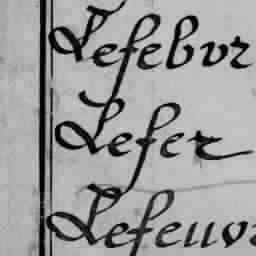 Lefebvr
Lefer
Lefeuvr